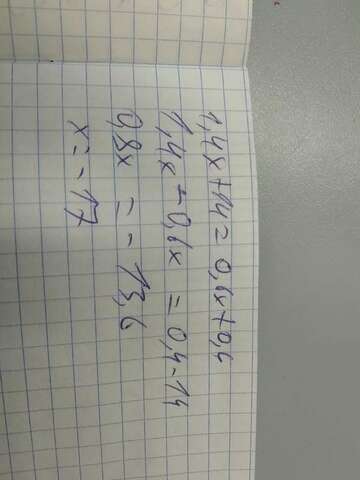 1,4x+14=0,6x+0,4
1,4x-0,6x=0,4-14
0,8x=-13,6
x=-17